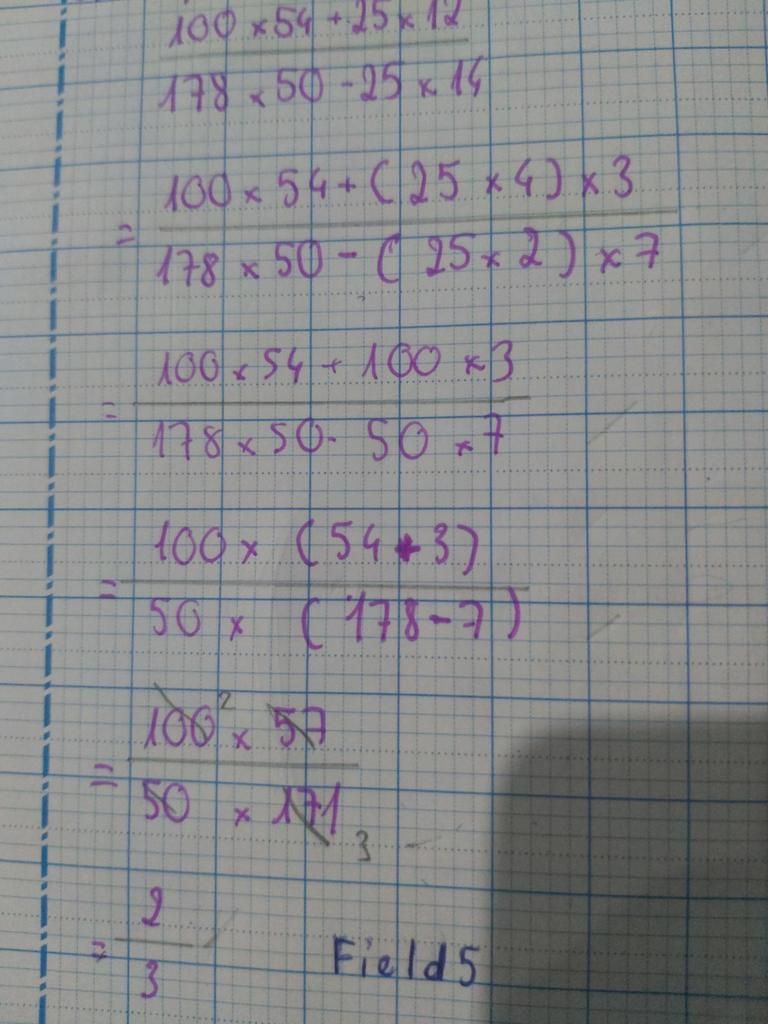 100 × 54 + 25 × 12
178 × 50 - 25 × 14
= 100 × 54 + ( 25 × 4 ) × 3
178 × 50 - ( 25 × 2 ) × 7
= 100 × 54 + 100 × 3
178 × 50 - 50 × 7
= 100 × ( 54 + 3 )
50 × ( 178 - 7 )
= 100 2 × 57
50 × 171 3
= 2
3
Field 5